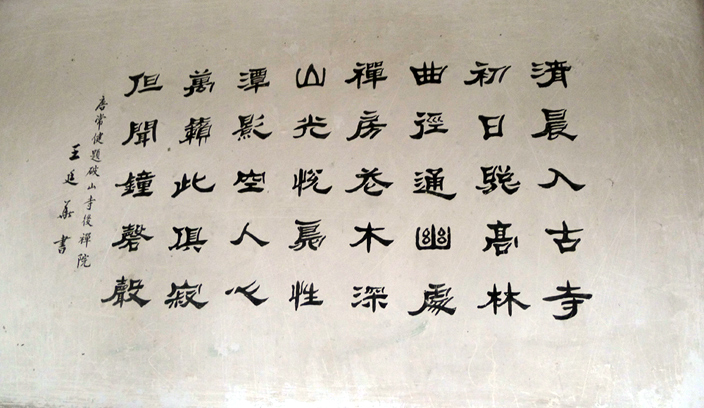 清晨入古寺
初日照高林
曲徑通幽處
禪房花木深
山光悅鳥性
潭影空人心
萬籟此俱寂
但聞鐘磬聲
唐常健題破山寺後禪院
王廷華書